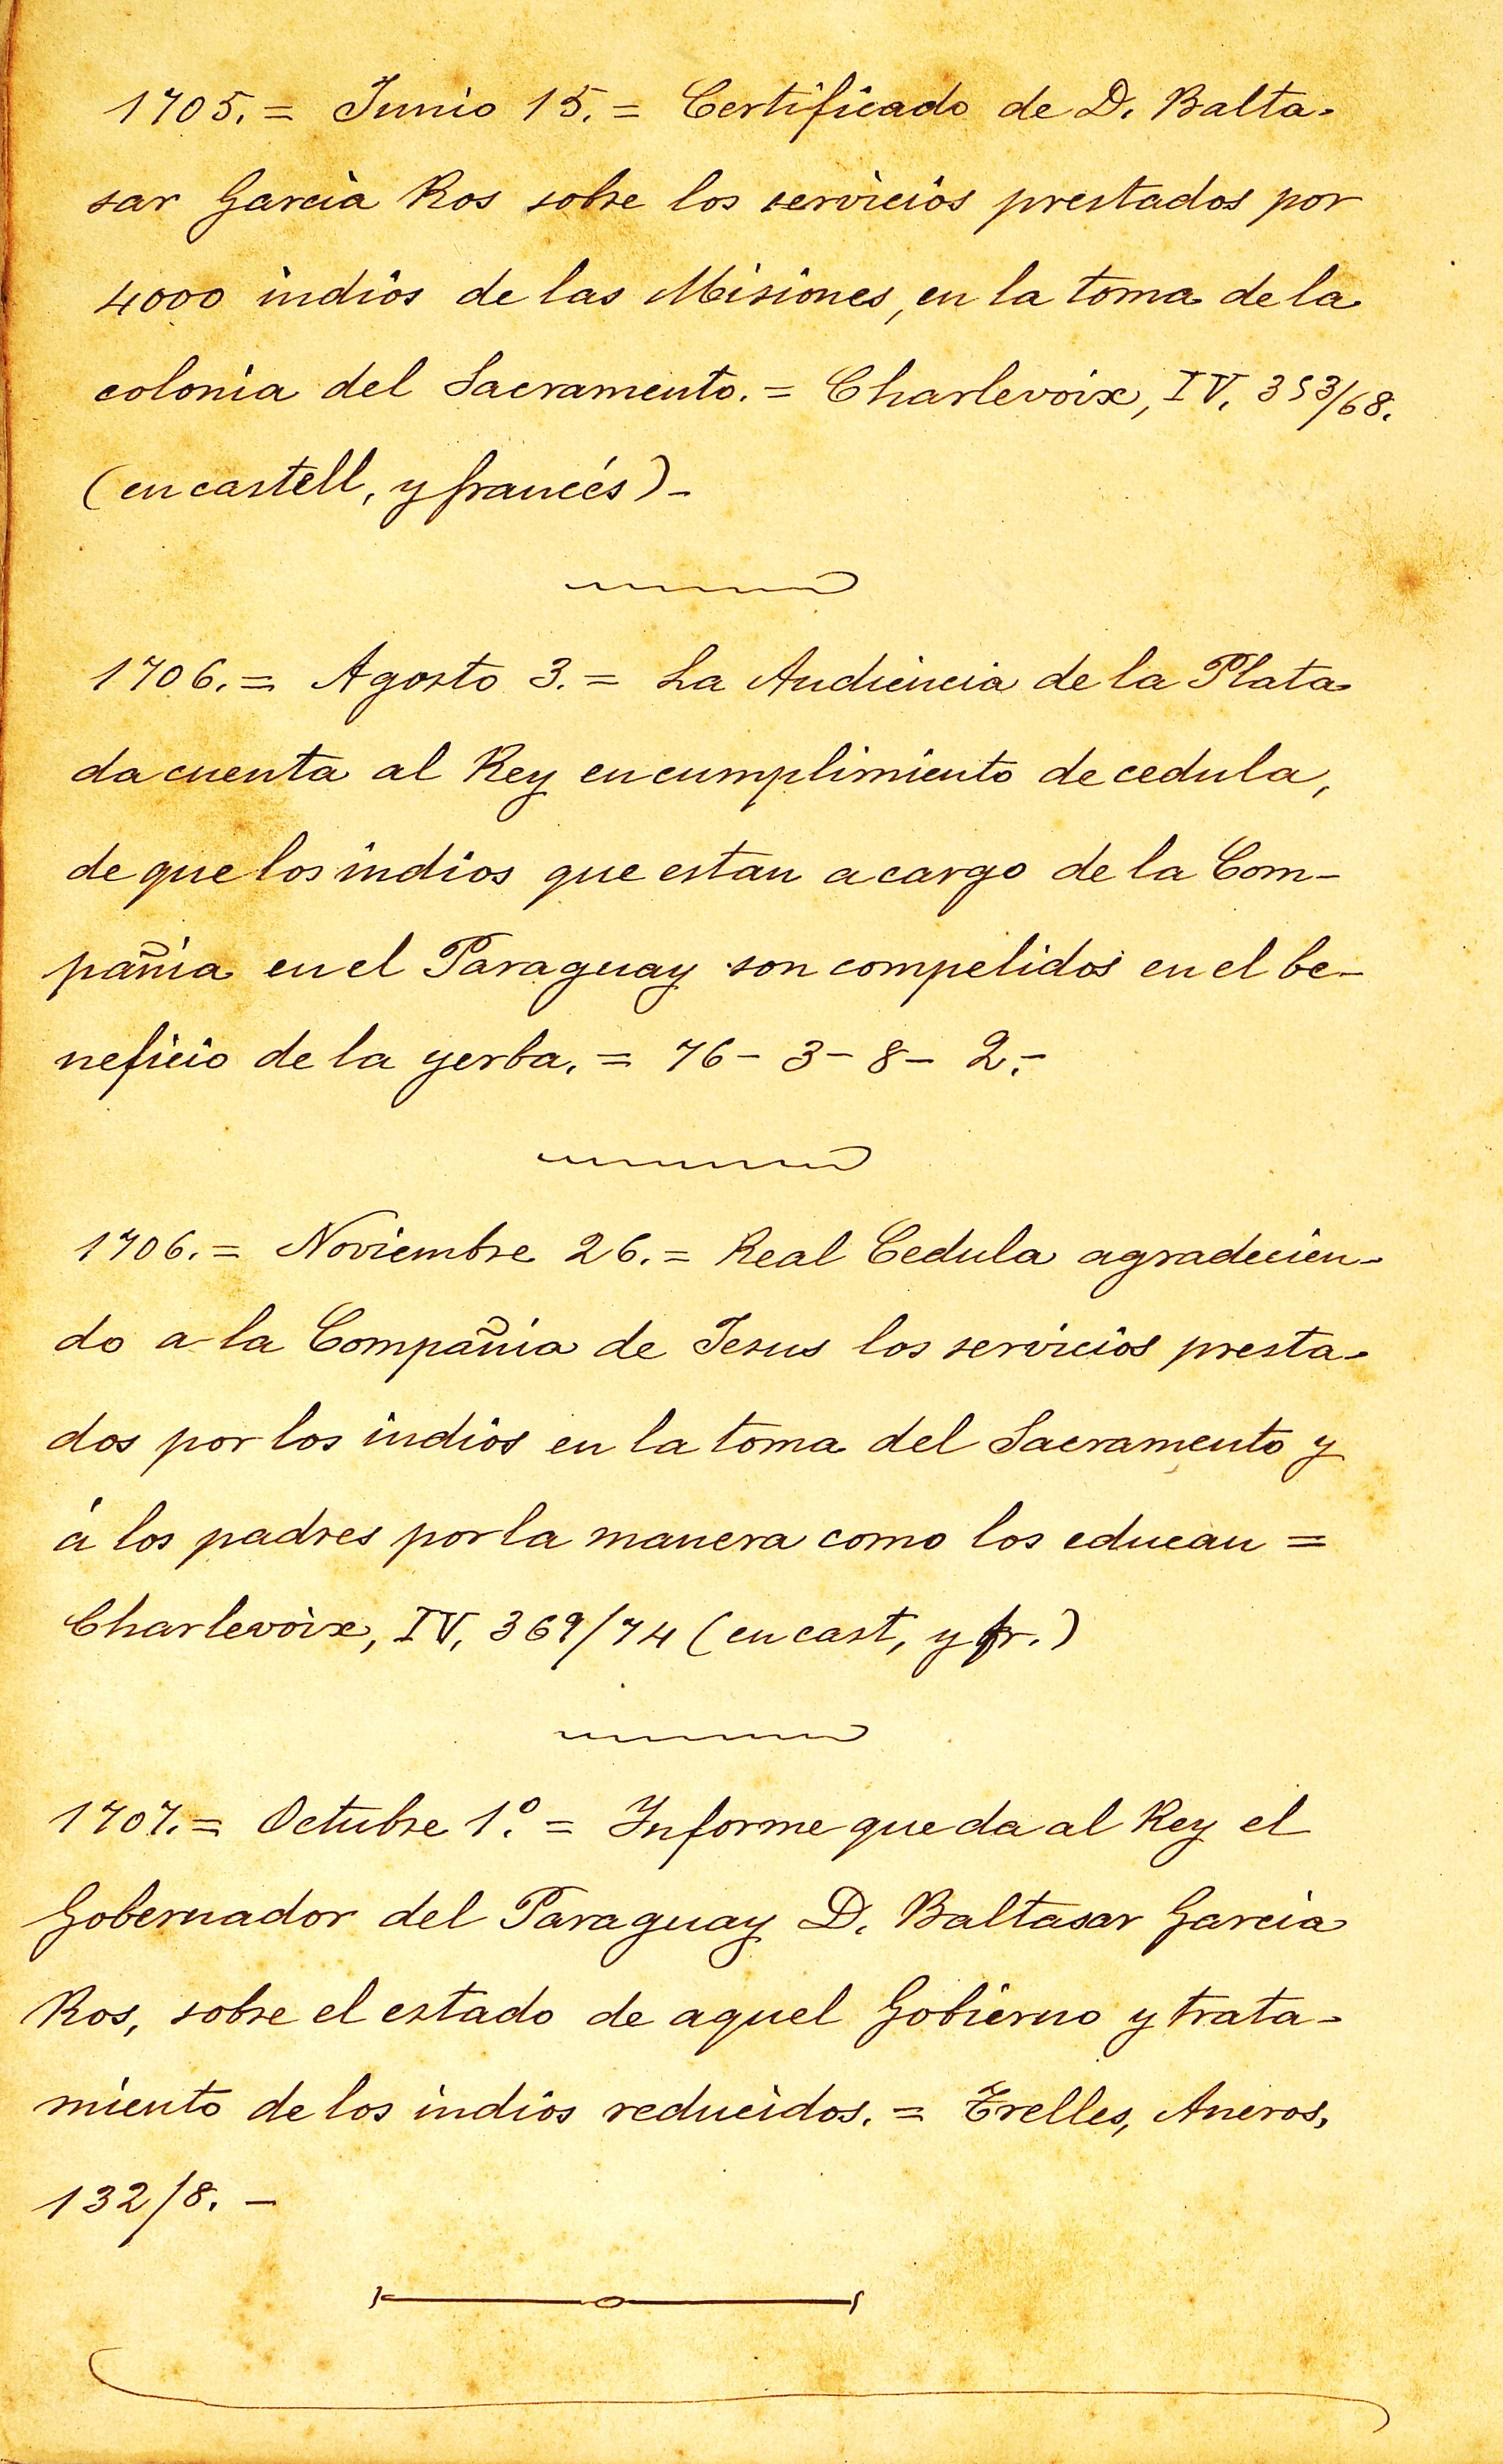 1705. = Junio 15. = Certificado de D. Balta-
sar Garcia Ros sobre los servicios prestados por
4000 indios de las Misiones, en la toma de la
colonia del Sacramento. = Charlevoix, IV, 353/68.
(en castell, y francés) -
1706. = Agosto 3. = La Audiencia de la Plata
da cuenta al Rey en cumplimiento de cedula,
de que los indios que estan a cargo de la Com-
pañia en el Paraguay son compelidos en el be-
neficio de la yerba. = 76 - 3 - 8 - 2. -
1706. = Noviembre 26. = Real Cedula agradecien-
do a la Compañia de Jesus los servicios presta-
dos por los indios en la toma del Sacramento y
á los padres por la manera como los educan =
Charlevoix, IV, 369/74 (en cast, y fr.)
1707. = Octubre 1.º = Informe que da al Rey el
Gobernador del Paraguay D. Baltasar Garcia
Ros, sobre el estado de aquel Gobierno y trata-
miento de los indios reducidos. = Trelles, Aneros,
132/8. -